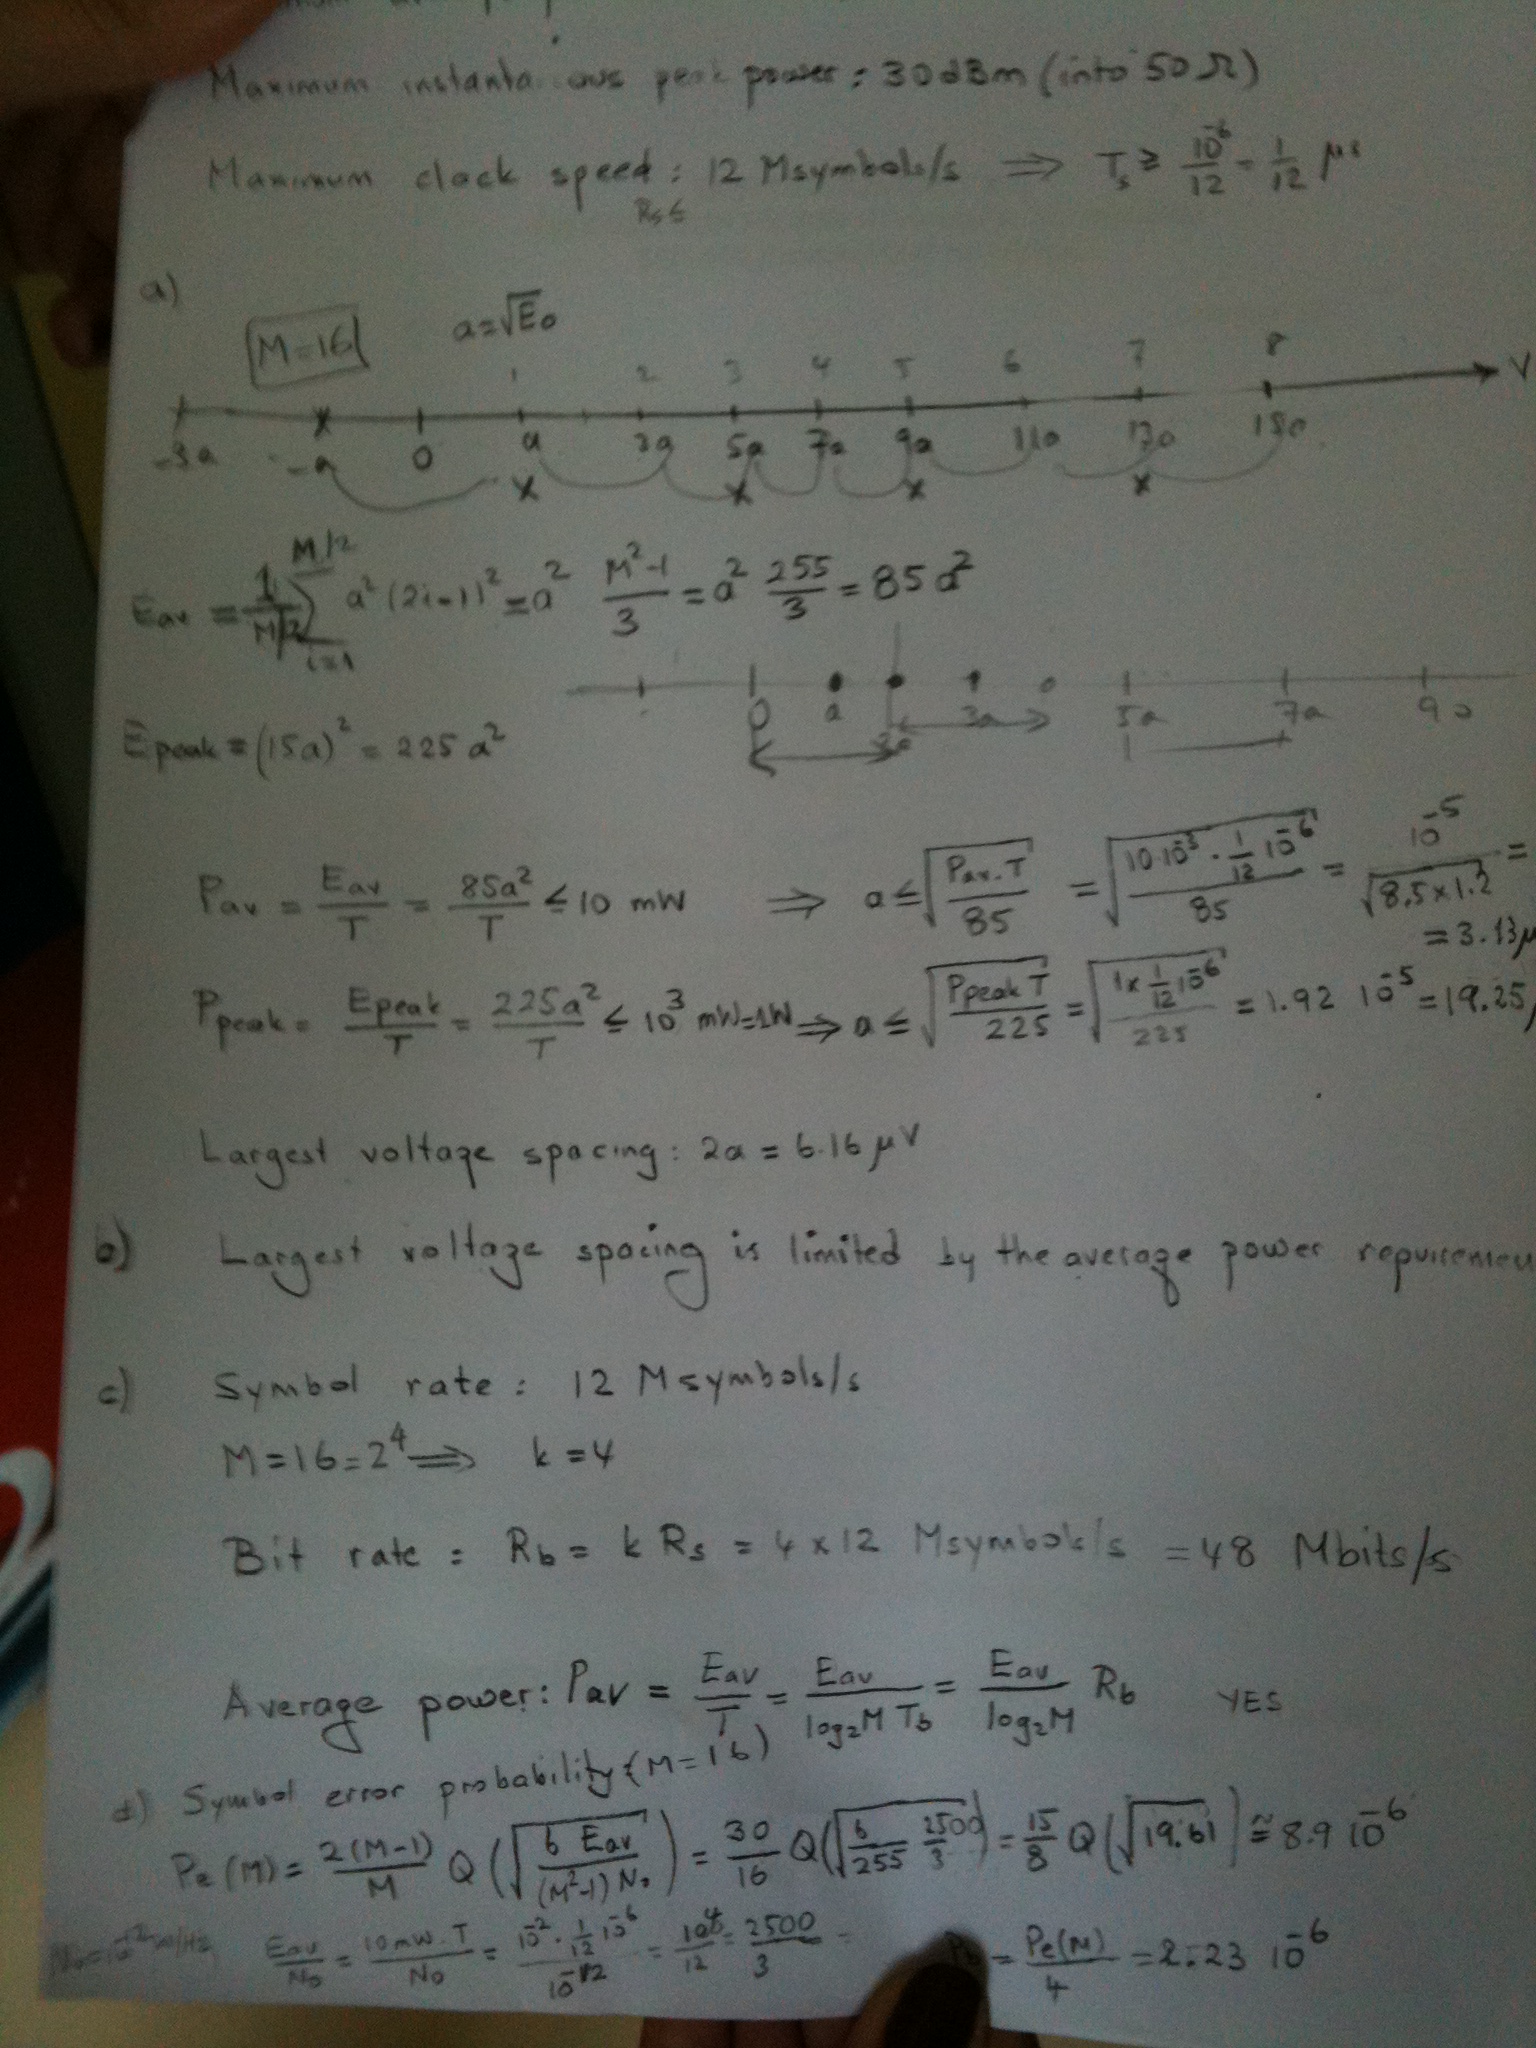 Maximum instantaneous peak power : 30 dBm (into 50 Ω)
Maximum clock speed : 12 Msymbols/s ⟹ Ts ≥ 10^-6/12 = 1/12 μs
Rs ≤
a)
M=16 a=√E0
1 2 3 4 5 6 7 8
-3a -a 0 a 3a 5a 7a 9a 11a 13a 15a V
Eav = 1/(M/2) Σ_{i=1}^{M/2} a²(2i-1)² = a² (M²-1)/3 = a² 255/3 = 85a²
0 a 3a 5a 7a 9a
Epeak = (15a)² = 225 a²
Pav = Eav/T = 85a²/T ≤ 10 mW ⟹ a ≤ √(Pav.T/85) = √(10.10^-3 . 1/12 10^-6 / 85) = 10^-5/√(8.5x1.2) =
= 3.13μ
Ppeak = Epeak/T = 225a²/T ≤ 10³ mW=1W ⟹ a ≤ √(Ppeak T/225) = √(1x 1/12 10^-6 / 225) = 1.92 10^-5 = 19.25
Largest voltage spacing : 2a = 6.16 μV
b) Largest voltage spacing is limited by the average power requiremen
c) Symbol rate : 12 Msymbols/s
M=16=2^4 ⟹ k=4
Bit rate : Rb = k Rs = 4 x 12 Msymbols/s = 48 Mbits/s
Average power : Pav = Eav/T = Eav/(log2M Tb) = Eav/log2M Rb YES
d) Symbol error probability (M=16)
Pe(M) = 2(M-1)/M Q(√(6 Eav/((M²-1) N0))) = 30/16 Q(√(6/255 2500/3)) = 15/8 Q(√19.61) ≅ 8.9 10^-6
Eav/N0 = 10mW.T/N0 = 10^-2 . 1/12 10^-6 / 10^-12 = 10^4/12 = 2500/3 =
= Pe(M)/4 = 2.23 10^-6